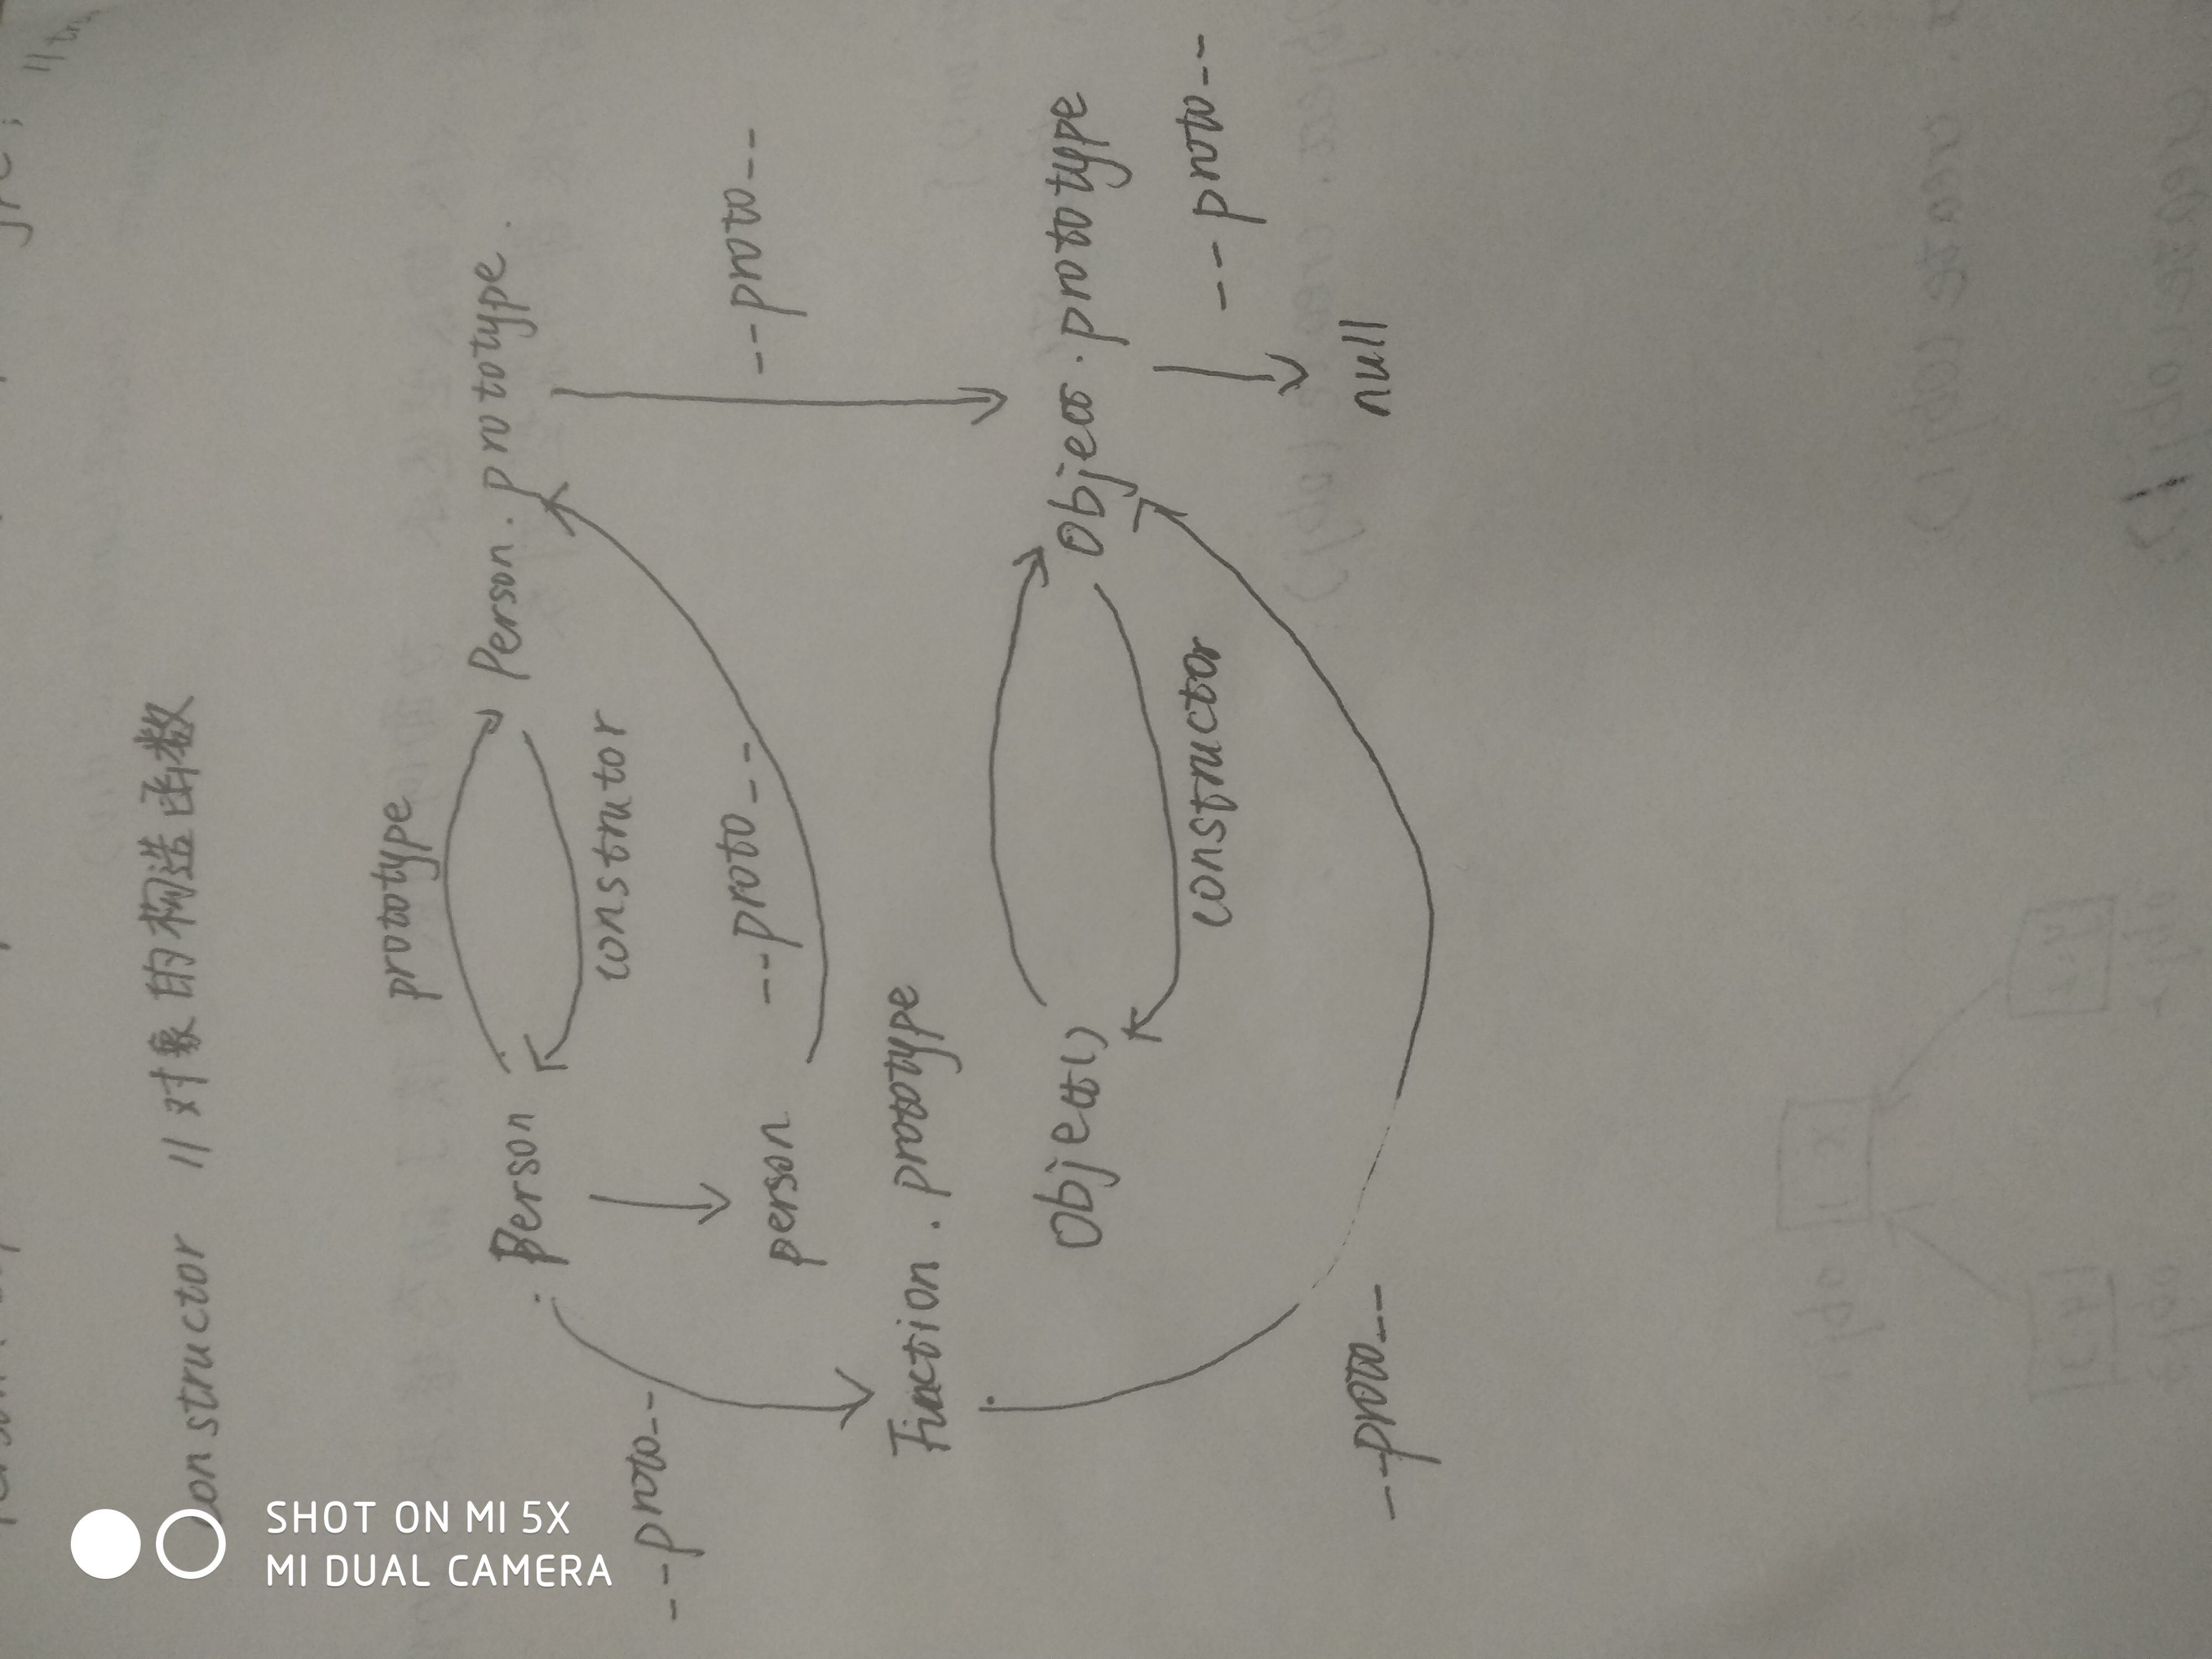 constructor // 对象的构造函数
prototype
Person Person. prototype.
constrator
--proto-- --proto-- --proto--
person
Function. prototype
Object() Object. prototype
constructor --proto--
null
--proto--
SHOT ON MI 5X
MI DUAL CAMERA